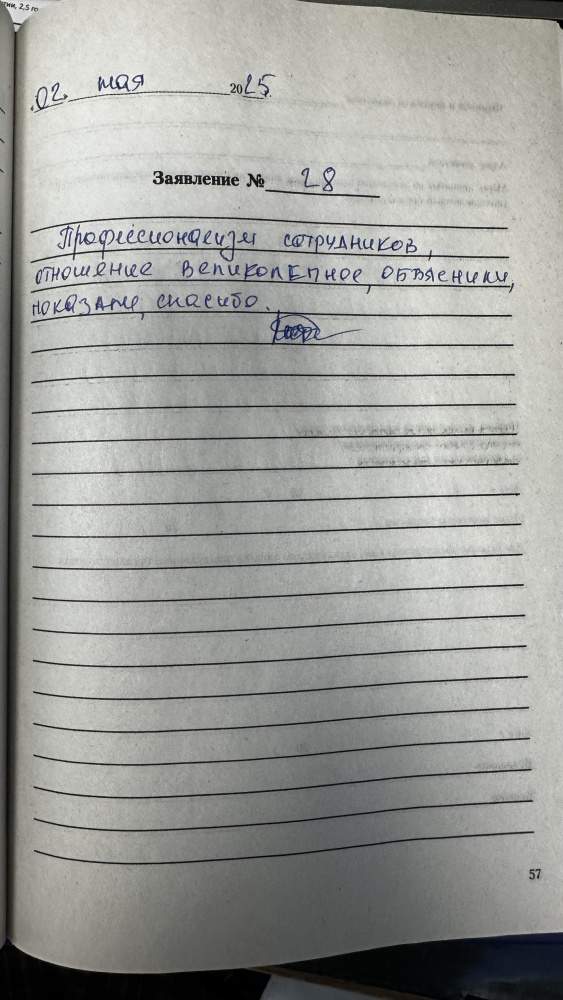 тии, 2,5 го
02. мая 2025.
Заявление № 28
Профессионализм сотрудников,
отношение великолепное, объяснили,
показали, спасибо.
57